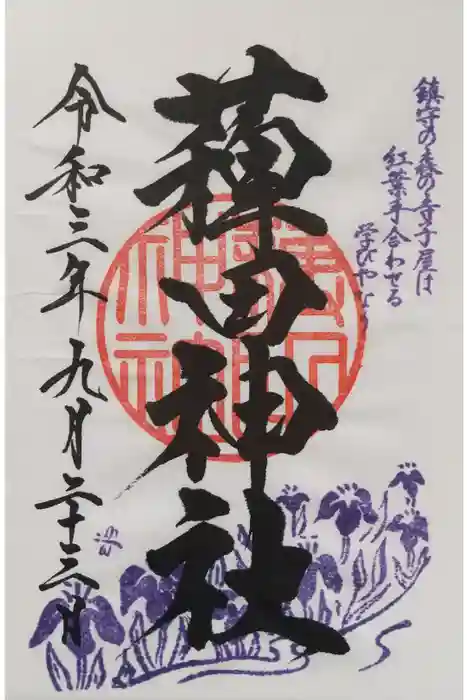 鎮守の森の寺子屋は
紅葉手合わせる
学びやなり
薭田神社
令和三年九月二十三日